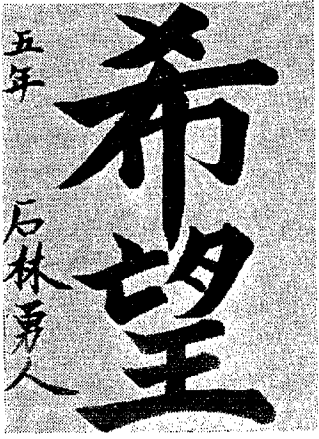 希望
五年 石林勇人